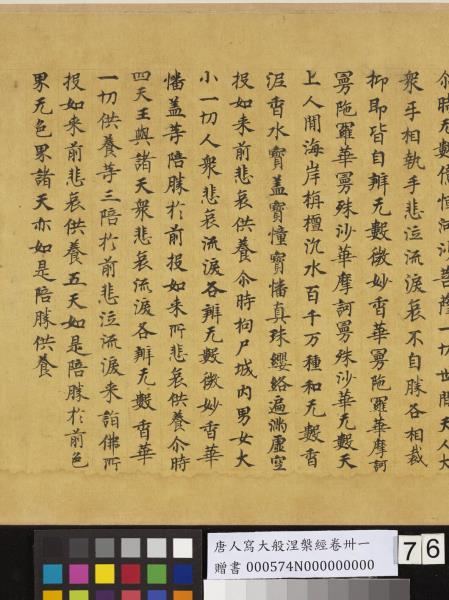 尒時无數億恒河沙菩薩一切世間天人大
衆乎相執手悲泣流淚哀不自勝各相裁
抑即皆自辦无數微妙香華曼陁羅華摩訶
曼陁羅華曼殊沙華摩訶曼殊沙華无數天
上人間海岸栴檀沉水百千万種和无數香
泥香水寶盖寶憧寶幡真珠纓絡遍滿虛空
投如来前悲哀供養尒時拘尸城内男女大
小一切人衆悲哀流淚各辦无數微妙香華
幡盖等陪勝扵前投如来所悲哀供養尒時
四天王與諸天衆悲哀流淚各辦无數香華
一切供養等三陪扵前悲泣流淚来詣佛所
投如来前悲哀供養五天如是陪勝扵前色
界无色界諸天亦如是陪勝供養
唐人寫大般涅槃經卷卅一
贈書 000574N000000000
7 6